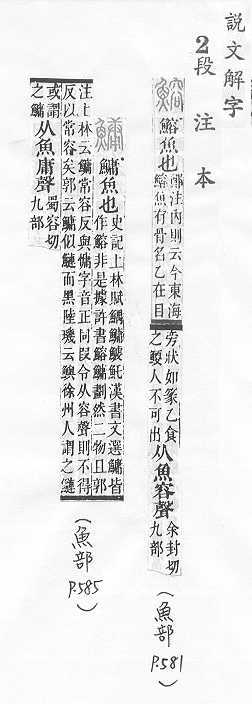 説文解字
2段注本
鰫魚也
鄭注內則云今東海
鰫魚有骨名乙在目
旁狀如篆乙食
之鯁人不可出
从魚容聲
余封切
九部
(魚部 P.581)
鱅魚也
史記上林賦鰅鱅鰬魠漢書文選鱅皆
作鰫非是據許書鰫鱅劃然二物且郭
注上林云鱅常容反與慵字音正同叚令从容聲則不得
反以常容矣郭云鱅似鰱而黑陸璣云鱮徐州人謂之鰱
或謂
之鱅
从魚庸聲
蜀容切
九部
(魚部 P.585)